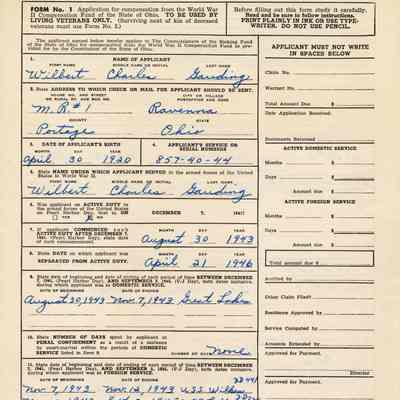 FORM No. 1 Application for compensation from the World War
II Compensation Fund of the State of Ohio. TO BE USED BY
LIVING VETERANS ONLY. (Surviving next of kin of deceased
veterans must use Form No. 2.)
Before filling out this form study it carefully.
Read and be sure to follow instructions.
PRINT PLAINLY IN INK OR USE TYPE-
WRITER. DO NOT USE PENCIL.
APPLICANT MUST NOT WRITE
IN SPACES BELOW
1. NAME OF APPLICANT
FIRST NAME MIDDLE NAME OR INITIAL LAST NAME
Wilbert Charles Gauding
2. State ADDRESS TO WHICH CHECK OR MAIL FOR APPLICANT SHOULD BE SENT.
M.R. #1 Ravenna
COUNTY STATE
Portage Ohio
3. DATE OF APPLICANT'S BIRTH
MONTH DAY YEAR
April 30 1920
4. APPLICANT'S SERVICE OR
SERIAL NUMBERS
857-40-44
5. State NAME UNDER WHICH APPLICANT SERVED in the armed forces of the United
States in World War II.
FIRST NAME MIDDLE NAME OR INITIAL LAST NAME
Wilbert Charles Gauding
6. Was applicant on ACTIVE DUTY in
the armed forces of the United States
on Pearl Harbor Day, that is, ON DECEMBER 7, 1941?
YES NO
7. If applicant COMMENCED such
ACTIVE DUTY AFTER DECEMBER 7,
1941 (Pearl Harbor Day), state date
of such commencement.
MONTH DAY YEAR
August 30 1943
8. State DATE on which applicant was
SEPARATED FROM ACTIVE DUTY.
MONTH DAY YEAR
April 21 1946
9. State date of beginning and date of ending of each period of time BETWEEN DECEMBER
7, 1941, (Pearl Harbor Day), AND SEPTEMBER 2, 1945 (V-J Day), both dates inclusive,
during which applicant was on DOMESTIC SERVICE.
DATE OF BEGINNING DATE OF ENDING
August 30, 1943 Nov. 7, 1943 Great Lakes
10. State NUMBER OF DAYS spent by applicant in
PENAL CONFINEMENT as a result of a sentence
by court-martial within the periods of DOMESTIC
SERVICE listed in Item 9.
NUMBER OF DAYS None
11. State date of beginning and date of ending of each period of time BETWEEN DECEMBER
7, 1941, (Pearl Harbor Day), AND SEPTEMBER 2, 1945 (V-J Day), both dates inclusive,
during which applicant was on FOREIGN SERVICE.
DATE OF BEGINNING DATE OF ENDING
Nov. 7, 1943 Nov. 12, 1943 USS
Claim No.
Warrant No.
Total Amount Due $
Date Application Received:
Documents Returned
ACTIVE DOMESTIC SERVICE
Months $
Days $
Amount due $
ACTIVE FOREIGN SERVICE
Months $
Days $
Amount due $
Total amount due $
Audited by
Other Claim Filed?
Residence Approved by
Service Computed by
Amounts Extended by
Approved for Payment.
Director
Approved for Payment.